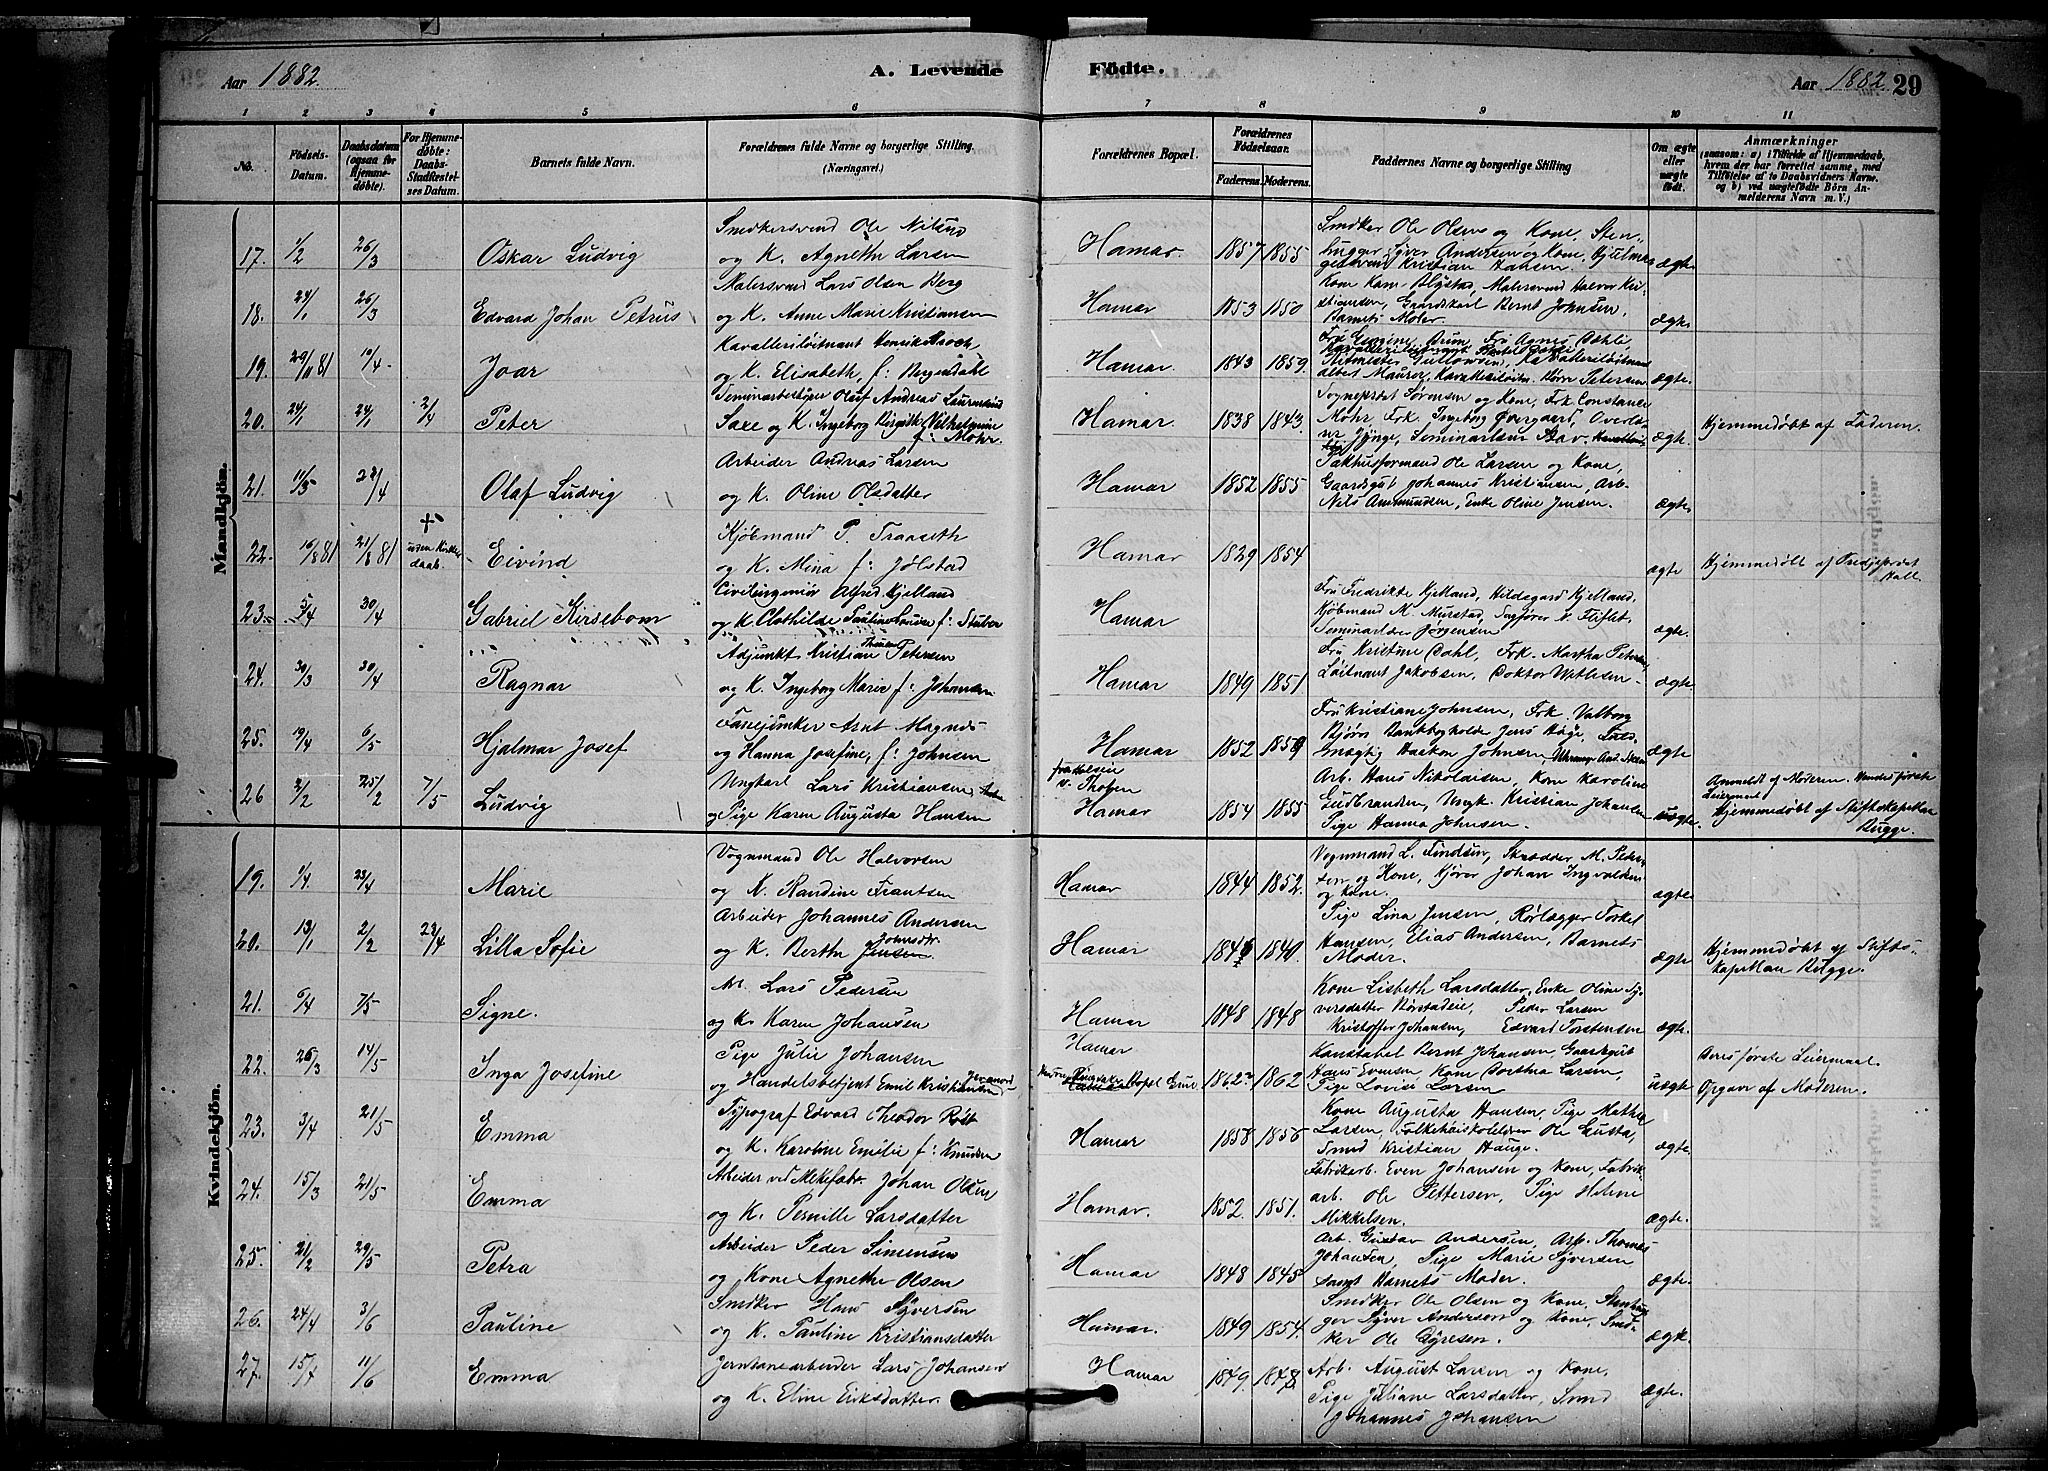 Aar 1882.
A. Levende
Födte.
Aar 1882. 29
1 2 3 4 5 6 7 8 9 10 11
No.
Födsels-Datum.
Daabsdatum (ogsaa for Hjemmedöbte).
For Hjemmedöbte: Daabs-Stadfæstelses Datum.
Barnets fulde Navn.
Forældrenes fulde Navne og borgerlige Stilling.
(Næringsvei.)
Forældrenes Bopæl.
Forældrenes Födselsaar.
Faderens. Moderens.
Faddernes Navne og borgerlige Stilling
Om ægte eller uægte födt.
Anmærkninger
(saasom: a) i Tilfælde af Hjemmedaab, hvem der har forrettet samme, med Tilföielse af to Daabsvidners Navne. og b) ved uægtefödte Börn Anmelderens Navn m. V.)
Mandkjön.
Snedkersvend Ole Nilsen
17. 1/2 26/3 Oskar Ludvig og K. Agnethe Larsen Hamar. 1857 1855 Snedker Ole Olsen og Kone, Stenhugger Syver Andersen og Kone, Kristian Jahnsen. ægte
Malersvend Lars Olsen Berg
18. 24/1 26/3 Edvard Johan Petrus og K. Anne Marie Kristiansen Hamar 1853 1850 Malersvend Halvor Kristiansen, Gaardskarl Bernt Johnsen, Barnets Moder. ægte
Kavalleriløitnant Henrik
19. 29/11 81 10/4 Joar og K. Elisabeth, f: Bergendahl Hamar. 1843 1859. Fru Agnes Dahle Albert Maurer, Petersen ægte
Seminarbestyrer Oluf Andreas
20. 24/1 24/1 2/4 Peter Saxe og K. Ingeborg Birgitte Vilhelmine f: Mohr Hamar. 1838 1843. Sogneprest Sørensen og Kone, Frk Constance Mohr Frk. Ingeborg Overgaard, ægte. Hjemmedøbt af Faderen.
Arbeider Andreas Larsen
21. 11/5 28/4 Olaf Ludvig og K. Oline Olsdatter Hamar 1852 1855 Pakhusformand Ole Larsen og Kone, Gaardsgut Johannes Kristiansen, Arb. Nils Ammundsen, Enke Oline Jensen. ægte
Kjøbmand P. Traaseth
22. 16/8 81 21/8 81 + uden Kirkedaab. Eivind og K. Mina f: Jølstad Hamar 1829 1854 ægte Hjemmedøbt af
Civilingeniør Alfred Kjelland
23. 5/4 30/4 Gabriel Kirsebom og K Clothilde Pauline Louise f: Stuber Hamar Fru Fredrikke Kjelland, Hildegard Kjelland, Kjøbmand M. Mustad, Seminarlærer Jørgensen ægte.
Adjunkt Kristian Petersen
24. 30/3 30/4 Ragnar og K. Ingeborg Marie f: Johansen Hamar 1849 1851 Fru Kristine Dahl, Frk. Martha Petersen, Løitnant Jakobsen, Doktor ægte.
Fanejunker Arnt Magnus
25. 19/4 6/5 Hjalmar Josef og Hanna Josefine, f: Johnsen Hamar 1852 1859 Fru Kristiane Johnsen, Frk. Valborg Bjørn Bankbogholder Jens Haakon Johnsen, ægte
Ungkarl Lars Kristiansen
26 2/2 25/2 7/5 Ludvig og Pige Karen Augusta Hansen Hamar 1854 1855 Arb. Hans Nikolaisen, Kone Karoline Gudbrandsen, Ungk. Kristian Johansen Pige Hanna Johnsen. uægte. Anmeldt af Moderen. Leiermaal Hjemmedøbt af Stiftskapellan Bugge.
Kvindekjön.
Vognmand Ole Halvorsen
19. 1/4. 23/4 Marie og K. Randine Frantsen Hamar 1844 1852. Vognmand L. Findsen, Skrædder M. Pedersen og Kone, Kjører Johan Ingvaldsen og Kone. ægte
Arbeider Johannes Andersen
20. 13/1 2/2 23/4 Lilla Sofie og K. Berthe Jensen Johnsdtr. Hamar 1846 1840. Pige Lina Jensen, Rørlægger Torkel Hansen, Elias Andersen, Barnets Moder. ægte Hjemmedøbt af Stiftskapellan Bugge.
Arb. Lars Pedersen
21. 6/4 7/5 Signe. og K. Karen Johansen Hamar 1848 1848 Kone Lisbeth Larsdatter, Enke Oline Syversdatter Peder Larsen Kristoffer Johansen, Edvard Torstensen ægte
Pige Julie Johansen Hamar
22. 26/3 14/5 Inga Josefine og Handelsbetjent Emil Kristiansen 1862 1862 Konstabel Bernt Johansen, Gaardsgut Hans Evensen, Kone Dorthea Larsen, Pige Lovise Larsen uægte Deres første Leiermaal. Opgave af Moderen.
Typograf Edvard Theodor
23. 3/4 21/5 Emma og K. Karoline Emilie f: Knudsen Hamar 1858 1856 Kone Augusta Hansen, Pige Mathea Larsen, Ole Gusta, Smed Kristian Hauge. ægte
Arbeider ved Johan Olsen
24. 15/3 21/5 Emma og K. Pernille Larsdatter Hamar. 1852. 1851. Fabrikarb. Even Johansen og Kone, Fabrikarb. Ole Pettersen, Pige Helene Mikkelsen. ægte.
Arbeider Peder Simensen
25. 21/2 29/5 Petra og Kone Agnethe Olsen Hamar 1848 1845 Arb. Gustav Andersen, Arb. Thomas Johansen, Pige Marie Syversen samt Barnets Moder. ægte.
Snedker Hans Syversen
26. 24/4 3/6 Pauline og K. Pauline Kristiansdatter Hamar. 1849 1854. Snedker Ole Olsen og Kone, Stenhugger Syver Andersen og Kone, Snedker Ole ægte
Jernbanearbeider Lars Johansen
27. 15/4 11/6 Emma og K. Eline Eriksdatter Hamar 1849. 1848 Arb. August Larsen og Kone, Pige Juliane Larsdatter, Smed Johannes Johansen ægte.